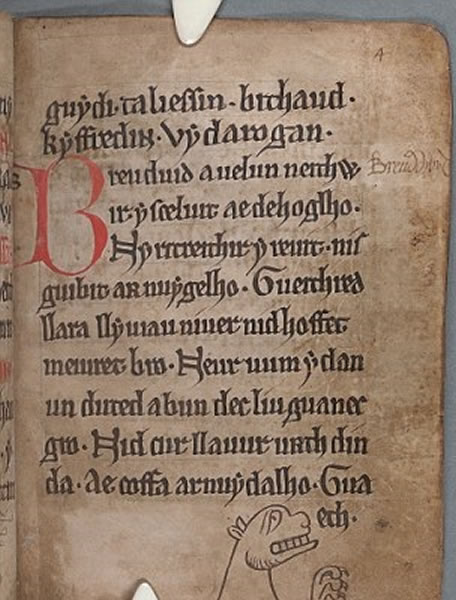 guẏdi. taliessin. bithaud.
kẏffredin. vẏ darogan.
Breuduid auelun neithw
ir ẏsceluit aedehoglho.
Nẏ ritreithir ẏ reuit. nis
guibit ar nuẏgelho. Gueithred
llara llẏuiau niuer nid hoffet
meuret bro. Neur uum ẏ dan
un duted abun dec liu guanec
gro. Nid cur llauur urth din
da. Ae coffa arnuẏdalho. Gua
ech.
4